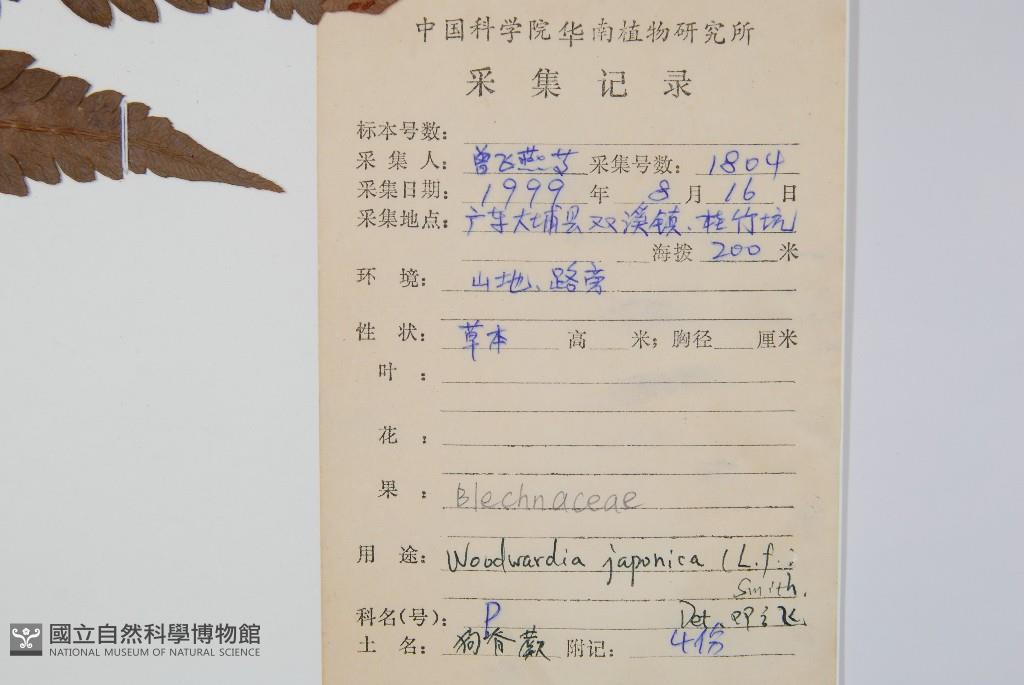 中国科学院华南植物研究所
采集记录
标本号数：
采集人：曾飞燕等 采集号数：1804
采集日期：1999年8月16日
采集地点：广东大埔县双溪镇、桂竹坑
海拨 200 米
环境：山地、路旁
性状：草本 高 米；胸径 厘米
叶：
花：
果：Blechnaceae
用途：Woodwardia japonica (L.f.)
Smith.
科名(号)：P Det. 邓云飞
土名：狗脊蕨 附记：4份
國立自然科學博物館
NATIONAL MUSEUM OF NATURAL SCIENCE